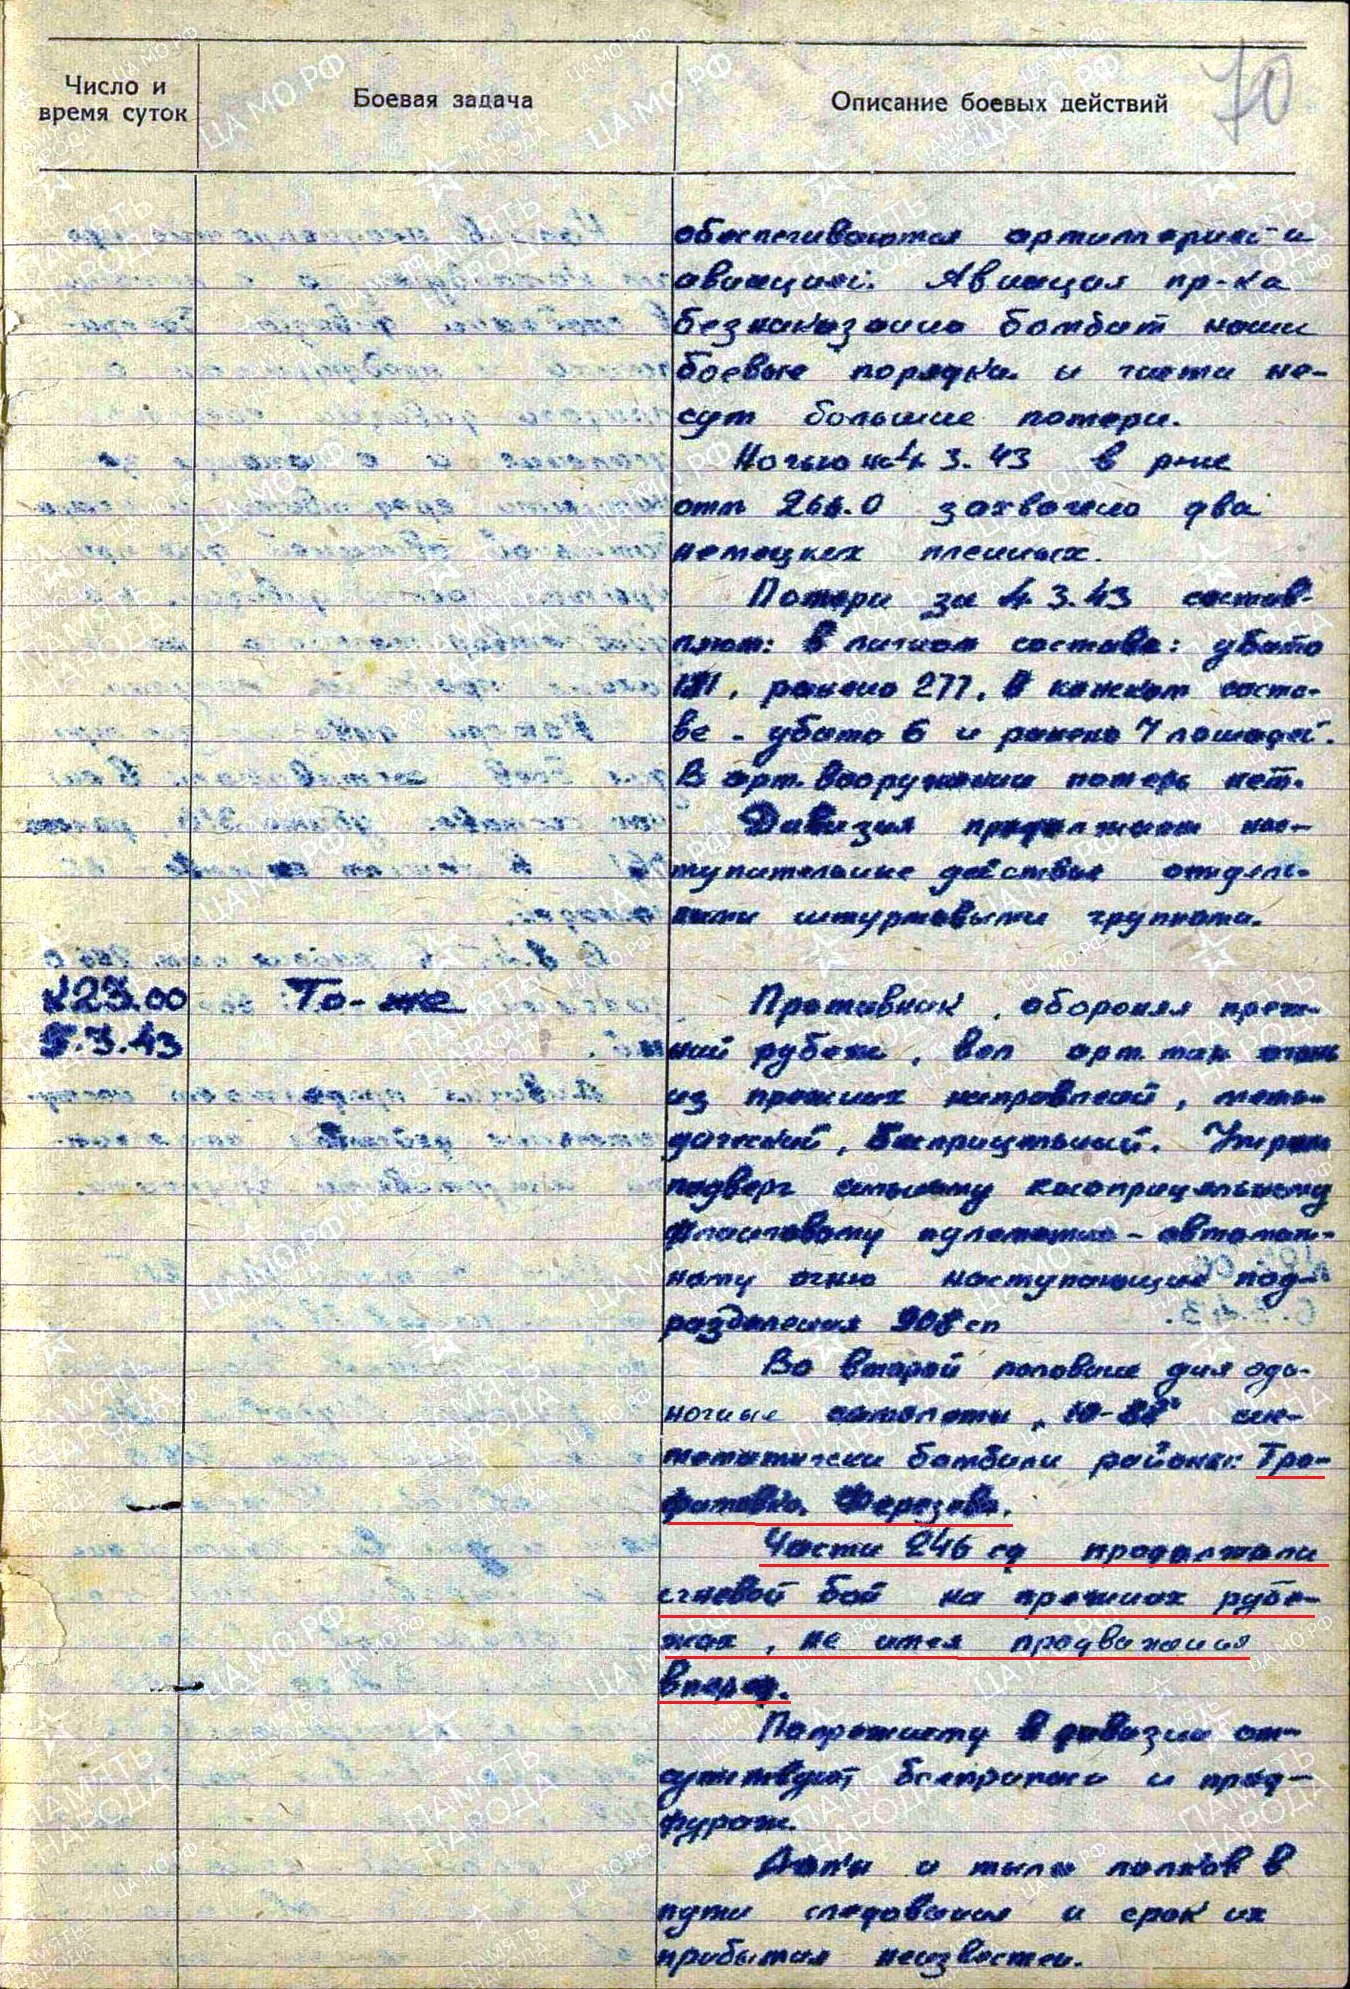 70
Число и
время суток
Боевая задача
Описание боевых действий
обеспечиваются артиллерией и
авиацией. Авиация пр-ка
безнаказанно бомбит наши
боевые порядки и части не-
сут большие потери.
Ночью на 4.3.43 в р-не
отм 266.0 захвачено два
немецких пленных.
Потери за 4.3.43 состав-
ляют: в личном составе: убито
ранено 277. В конском соста-
ве - убито 6 и ранено 7 лошадей.
В арт. вооружении потерь нет.
Дивизия продолжает нас-
тупательные действия отдель-
ными штурмовыми группами.
к 23.00
5.3.43
То-же
Противник, обороняя преж-
ний рубеж, вел арт. мин огонь
из прежних направлений, мето-
дический, бесприцельный. Утром
подверг сильному косоприцельному
фланговому пулеметно-автомат-
ному огню наступающие под-
разделения 908 сп
Во второй половине дня оди-
ночные самолеты "Ю-88" сис-
тематически бомбили районы: Тро-
фимовка, Ферезево.
Части 246 сд продолжали
огневой бой на прежних рубе-
жах, не имея продвижения
вперед.
Попрежнему в дивизии от-
сутствуют боеприпасы и прод-
фураж.
Доп'ы и тылы полков в
пути следования и срок их
прибытия неизвестен.